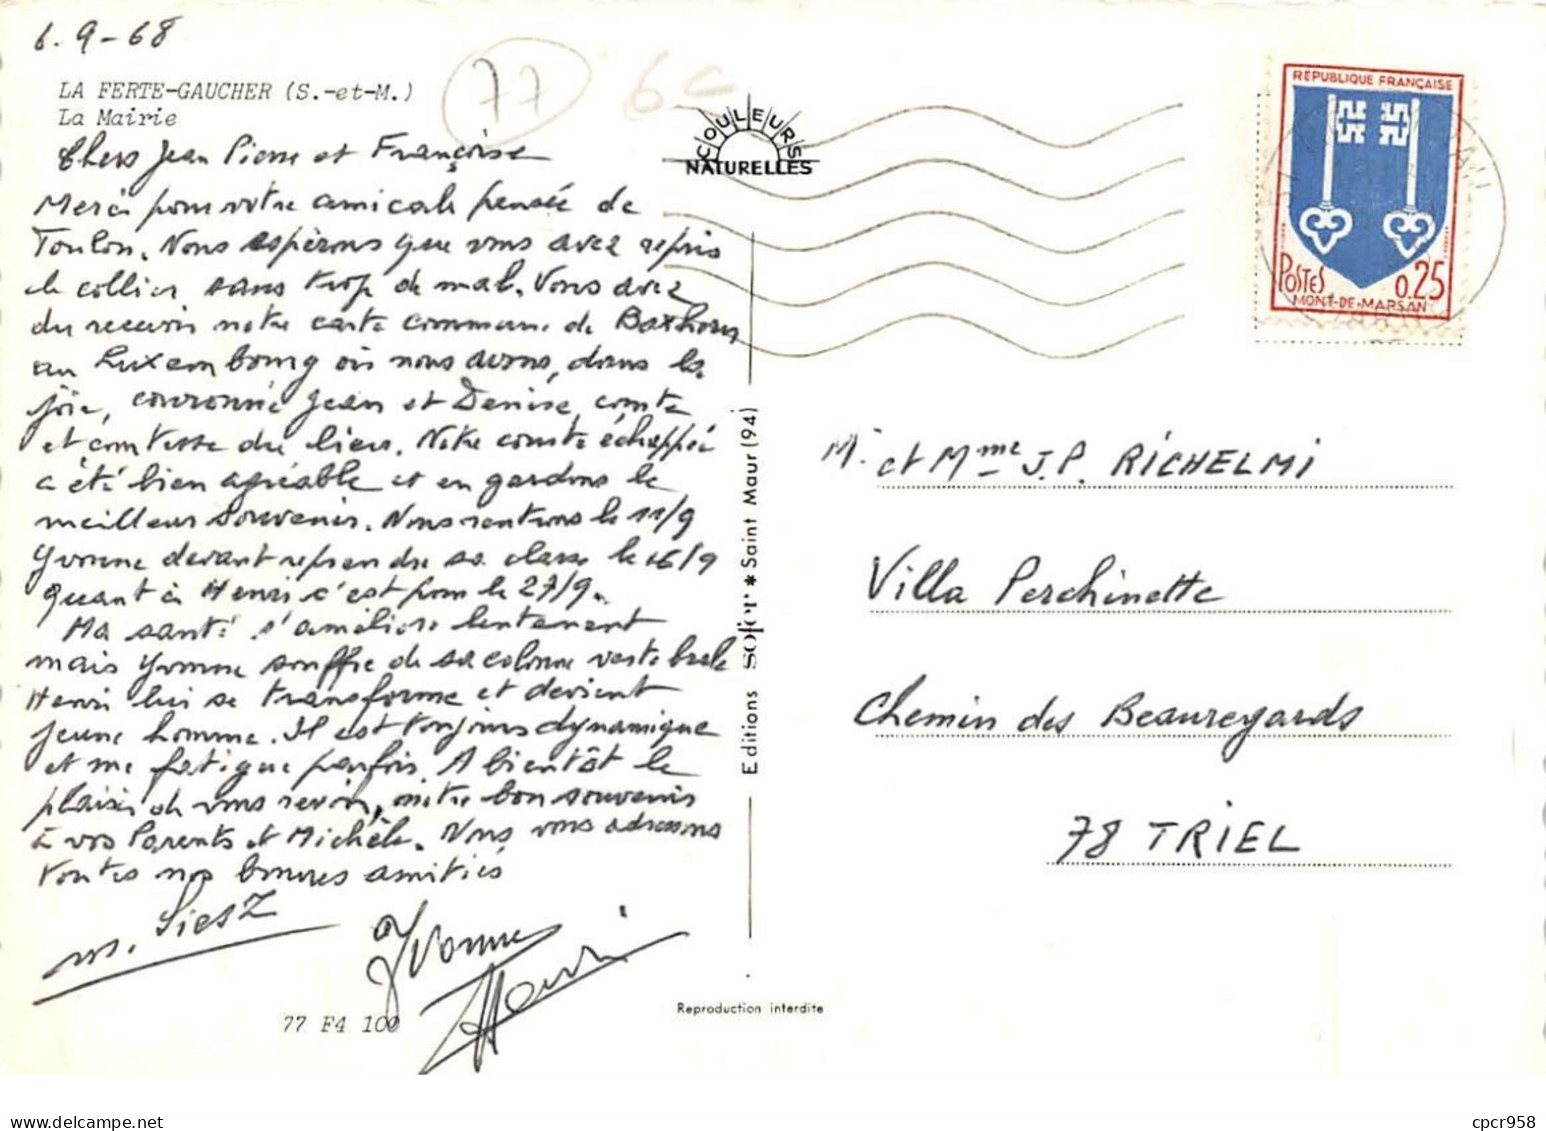 6.9-68
77
6c
LA FERTE-GAUCHER (S.-et-M.)
La Mairie
Chers Jean Pierre et Françoise
Merci pour votre amicale pensée de
Toulon. Nous espérons que vous avez repris
le collier sans trop de mal. Vous avez
du recevoir notre carte commune de Boxhorn
au Luxembourg où nous avons, dans la
joie, couronné Jean et Denise, comte
et comtesse du lieu. Notre courte échappée
a été bien agréable et en gardons le
meilleur souvenir. Nous rentrons le 11/9
Yvonne devant reprendre sa classe le 16/9
quant à Henri c'est pour le 27/9.
Ma santé s'améliore lentement
mais Yvonne souffre de sa colonne vertebrale
Henri lui se transforme et devient
jeune homme. Il est toujours dynamique
et me fatigue parfois. A bientôt le
plaisir de vous revoir, notre bon souvenir
à vos Parents et Michèle. Nous vous adressons
toutes nos bonnes amitiés
Yvonne
Henri
77 F4 100
COULEURS
NATURELLES
Editions SOFER * Saint Maur (94)
Reproduction interdite
REPUBLIQUE FRANÇAISE
POSTES 0,25
MONT-DE-MARSAN
Mr et Mme J.P. RICHELMI
Villa Perchinette
Chemin des Beauregards
78 TRIEL
cpcr958